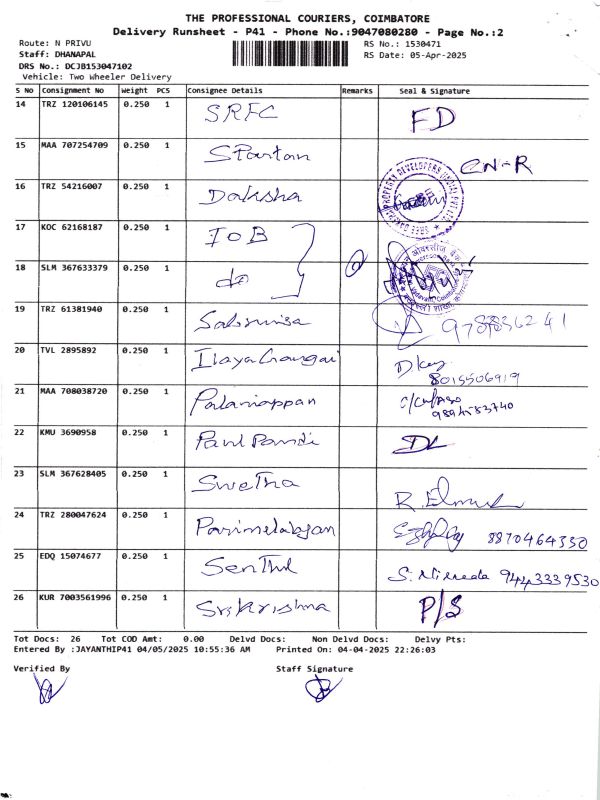 THE PROFESSIONAL COURIERS, COIMBATORE
Delivery Runsheet - P41 - Phone No.:9047080280 - Page No.:2
Route: N PRIVU RS No.: 1530471
Staff: DHANAPAL RS Date: 05-Apr-2025
DRS No.: DCJB153047102
Vehicle: Two Wheeler Delivery
S No Consignment No Weight PCS Consignee Details Remarks Seal & Signature
14 TRZ 120106145 0.250 1 SRFC FD
15 MAA 707254709 0.250 1 Spartan CN-R
16 TRZ 54216007 0.250 1 Daksha
17 KOC 62168187 0.250 1 IOB
18 SLM 367633379 0.250 1 do
19 TRZ 61381940 0.250 1
20 TVL 2895892 0.250 1 8015506919
21 MAA 708038720 0.250 1 Palaniappan
22 KMU 3690958 0.250 1 Paul Pandi DL
23 SLM 367628405 0.250 1 Swetha
24 TRZ 280047624 0.250 1 8870464330
25 EDQ 15074677 0.250 1 Senthil 9443339530
26 KUR 7003561996 0.250 1 Sri Krishna P/S
Tot Docs: 26 Tot COD Amt: 0.00 Delvd Docs: Non Delvd Docs: Delvy Pts:
Entered By :JAYANTHIP41 04/05/2025 10:55:36 AM Printed On: 04-04-2025 22:26:03
Verified By Staff Signature